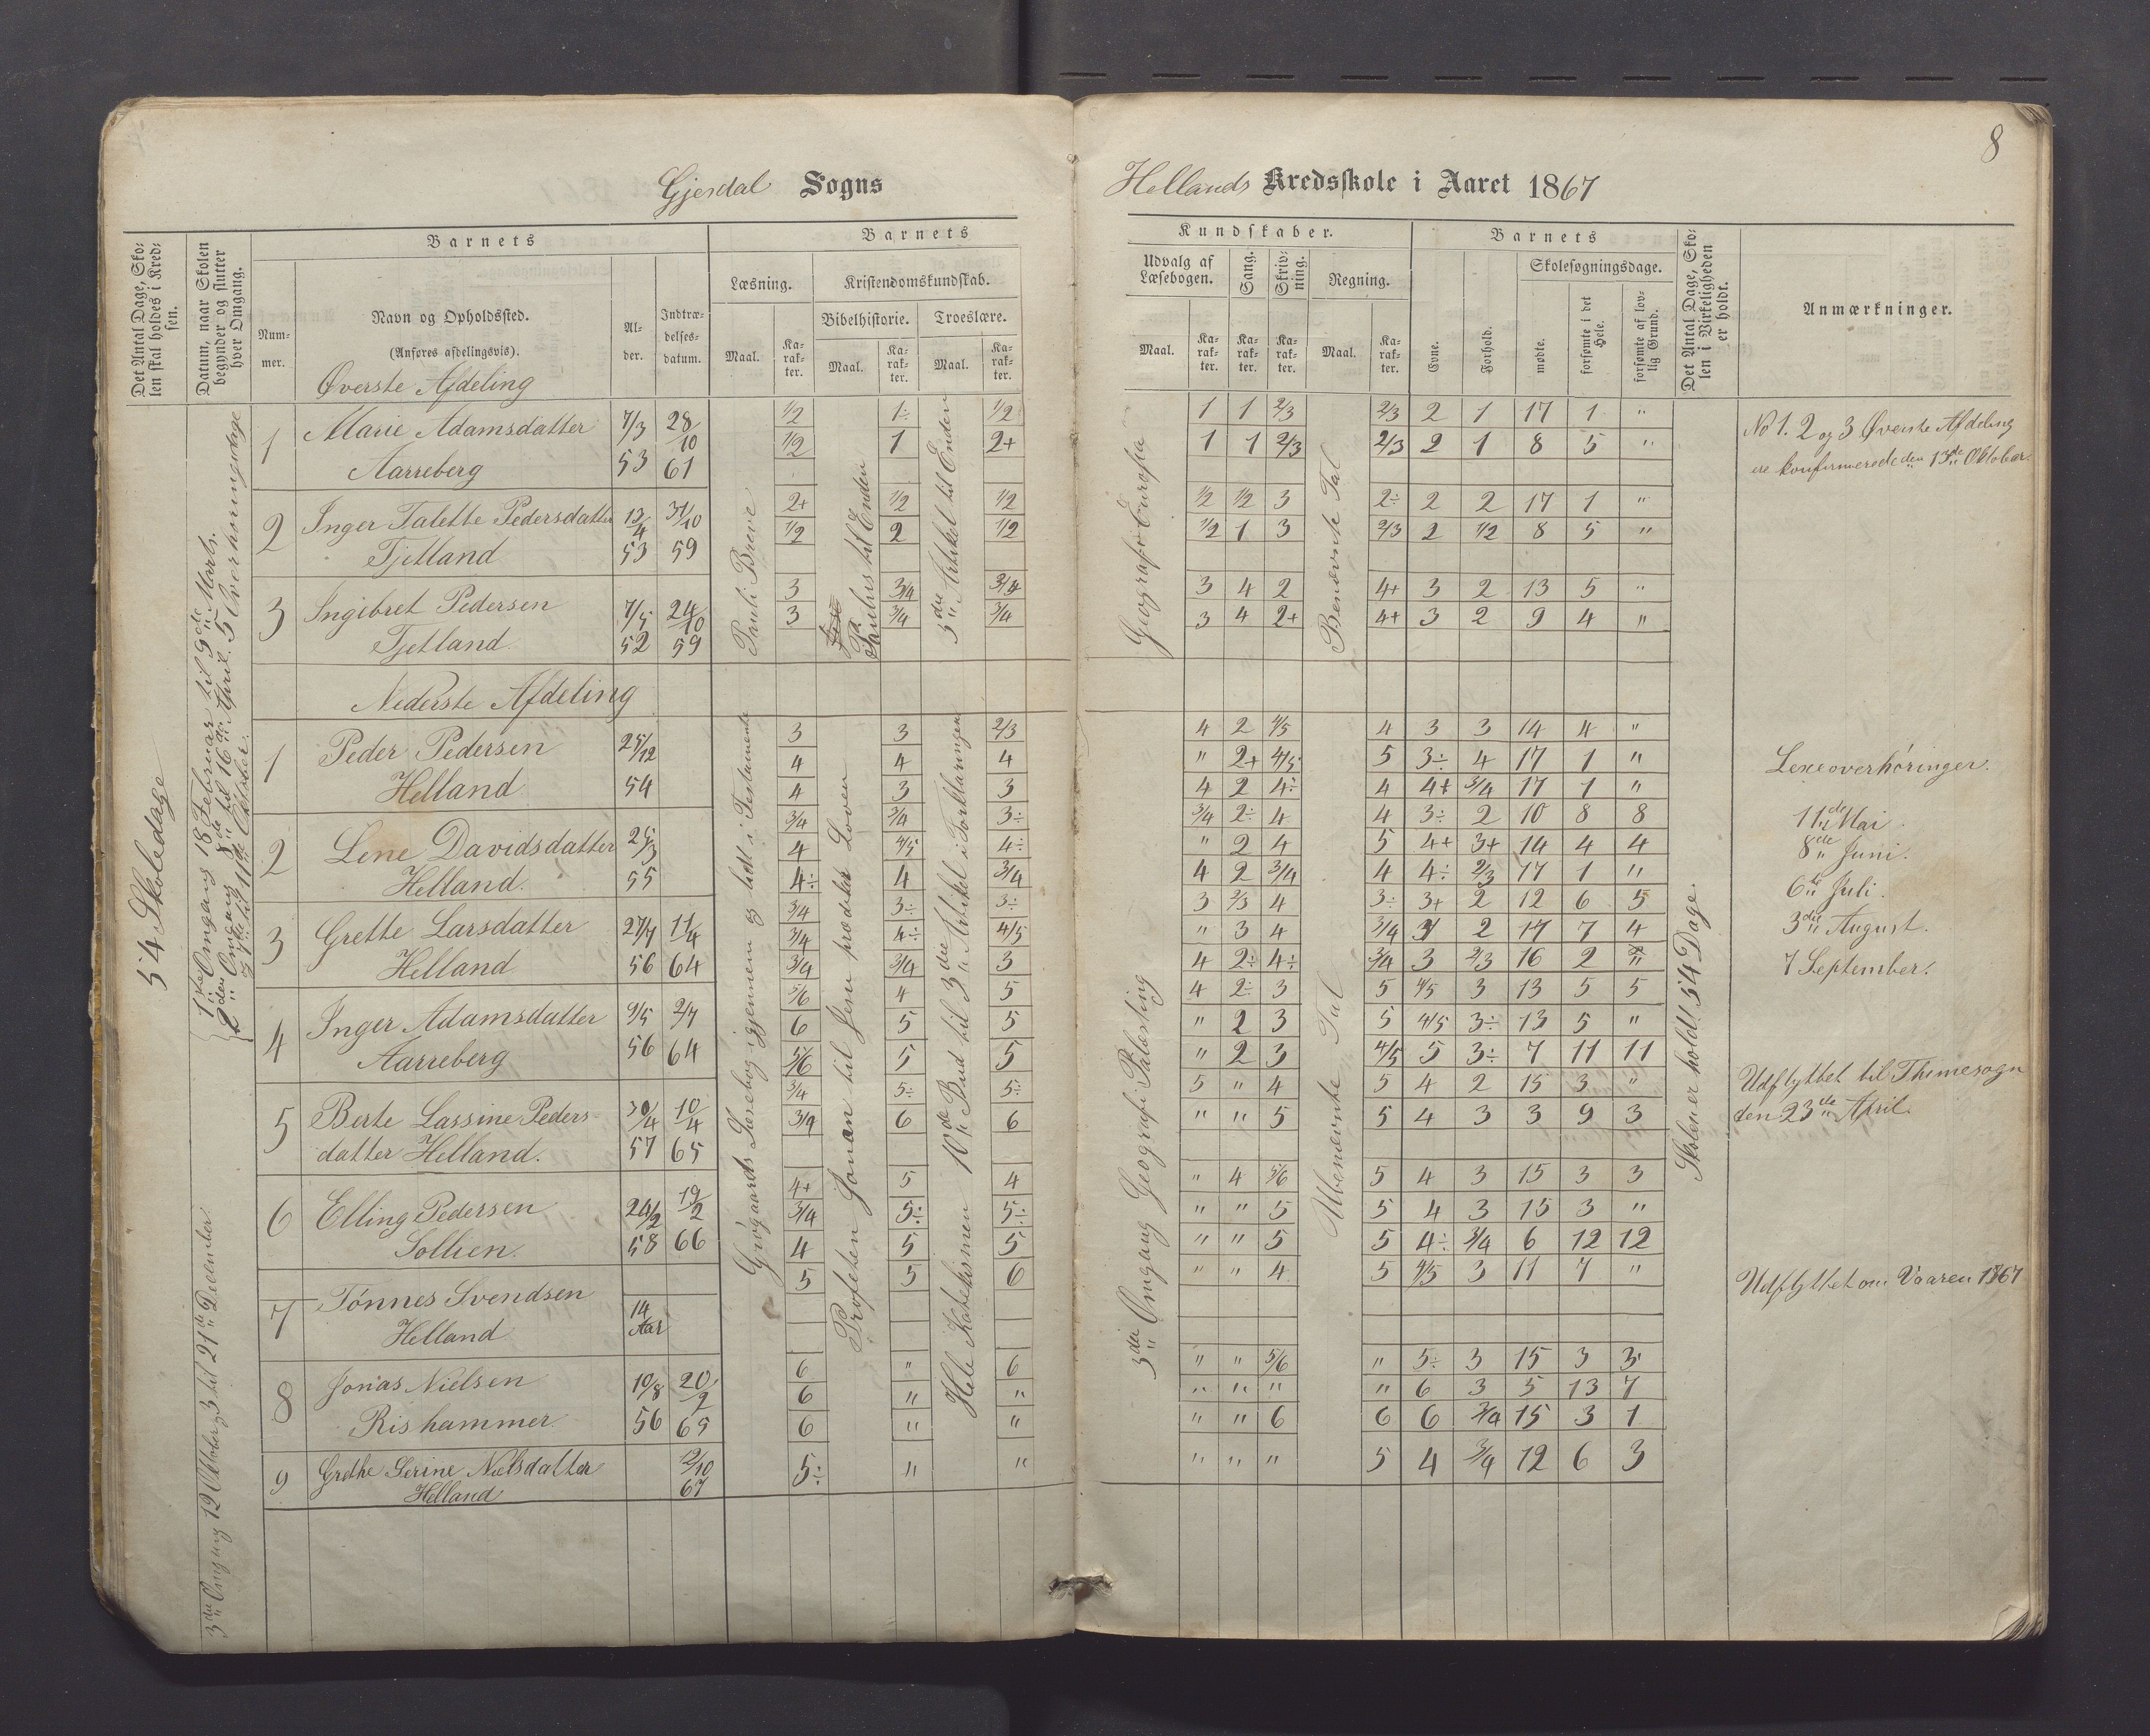 8
Gjesdal Sogns
Hellands Kredsskole i Aaret 1867
Det Antal Dage, Sko-
len skal holdes i Kred-
sen.
Datum, naar Skolen
begynder og slutter
hver Omgang.
Barnets
Num-
mer.
Navn og Opholdssted.
(Anføres afdelingsvis).
Al-
der.
Indtræ-
delses-
datum.
Barnets
Læsning.
Maal.
Ka-
rak-
ter.
Kristendomskundskab.
Bibelhistorie.
Maal.
Ka-
rak-
ter.
Troeslære.
Maal.
Ka-
rak-
ter.
Kundskaber.
Udvalg af
Læsebogen.
Maal.
Ka-
rak-
ter.
Sang.
Ka-
rak-
ter.
Skriv-
ning.
Ka-
rak-
ter.
Regning.
Maal.
Ka-
rak-
ter.
Barnets
Evne.
Forhold.
Skolesøgningsdage.
mødte.
forsømte i det
Hele.
forsømte af lov-
lig Grund.
Det Antal Dage, Sko-
len i Virkeligheden
er holdt.
Anmærkninger.
54 Skoledage
1ste Omgang 18 Februar til 9de Marts.
2den Omgang 8de til 16de April. 5 Overhøringsdage
3die Omgang 12 Oktober, 3 til 21de December
Øverste Afdeling
1 Marie Adamsdatter 7/3 28/10
Aarreberg 53 61
2 Inger Talette Pedersdatter 13/4 31/10
Tjetland 53 59
3 Ingebret Pedersen 7/5 24/10
Tjetland 52 59
Nederste Afdeling
1 Peder Pedersen 25/12
Helland 54
2 Lene Davidsdatter 25/3
Helland. 55
3 Grette Larsdatter 27/7 11/4
Helland 56 64
4 Inger Adamsdatter 9/5 2/7
Aarreberg 56 64
5 Berte Lassine Peders- 30/4 10/4
datter Helland. 57 65
6 Elling Pedersen 24/2 19/2
Sollien. 58 66
7 Tønnes Svendsen 14
Helland Aar
8 Jonas Nielsen 10/8 20/2
Rishammer 56 65
9 Grethe Serine Nielsdatter 12/10
Helland 67
Pauli Breve
Paulus til Enden
3die Artikel til Enden
Geografi Europa
Benævnte Tal
1/2 1÷ 1/2 1 1 2/3 2/3 2 1 17 1 "
1/2 1 2+ 1 1 2/3 2/3 2 1 8 5 "
2+ 1/2 1/2 1/2 1/2 3 2÷ 2 2 17 1 "
1/2 2 1/2 1/2 1 3 2/3 2 1/2 8 5 "
3 3/4 3/4 3 4 2 4+ 3 2 13 5 "
3 3/4 3/4 3 4 2+ 4+ 3 2 9 4 "
Grøgaards Læsebog igjennem og lidt i Testamente
Profeten Jonan til Jesu prædker Loven
Hele Katekismen 10de Bud til 3die Artikel i Forklaringen
3die Omgang Geografi Palesting
Ubenævnte Tal
3 3 2/3 4 2 4/5 4 3 3 14 4 "
4 4 4 " 2+ 4/5 5 3÷ 4 17 1 "
4 3 3 4 2 4÷ 4 4+ 3/4 17 1 "
3/4 3/4 3÷ 3/4 2÷ 4 4 3÷ 2 10 8 8
4 4/5 4÷ " 2 4 5 4+ 3+ 14 4 4
4÷ 4 3/4 4 2 3/4 4 4÷ 2/3 17 1 "
3/4 3÷ 3÷ 3 2/3 4 3÷ 3+ 2 12 6 5
3/4 4÷ 4/5 " 3 4 3/4 3 2 17 7 4
3/4 3/4 3 4 2÷ 4÷ 3/4 3 2/3 16 2 "
5/6 4 5 4 2÷ 3 5 4/5 3 13 5 5
6 5 5 " 2 3 5 4/5 3÷ 13 5 "
5/6 5 5 " 2 3 4/5 5 3÷ 7 11 11
3/4 5÷ 5÷ 5 " 4 5 4 2 15 3 "
3/4 6 6 " " 5 5 4 3 3 9 3
4+ 5 4 " 4 5/6 5 4 3 15 3 3
3/4 5÷ 5÷ " " 5 5 4 3 15 3 "
4 5 5 " " 5 5 4÷ 3/4 6 12 12
5 5 6 " " 4 5 4/5 3 11 7 "
6 " 6 " " 5/6 " 5÷ 3 15 3 3
6 " " " " " " 6 3 5 13 7
6 " " " " 6 6 6 3/4 15 3 1
5÷ " " " " " 5 4 3/4 12 6 3
Skolen er holdt 54 Dage.
No 1. 2 og 3 Øverste Afdeling
ere konfirmerede den 13de Oktober.
Lexeoverhøringer.
11de Mai.
8de Juni.
6te Juli.
3die August.
7 September.
Udflyttet til Thimesogn
den 23de April.
Udflyttet om Vaaren 1867